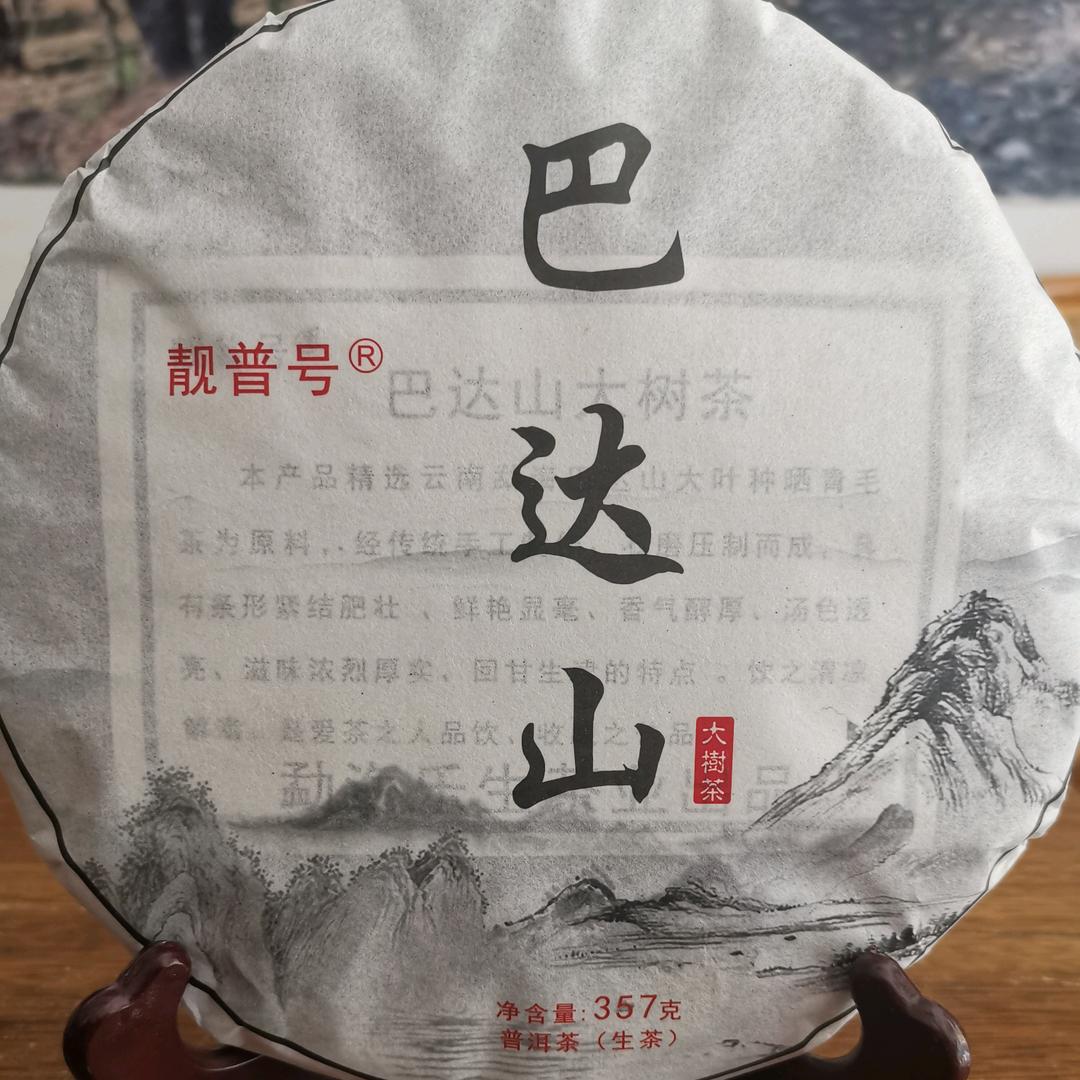 巴达山
靓普号®
巴达山大树茶
本产品精选云南 山大叶种晒青毛
茶为原料,经传统手工 磨压制而成,具
有条形紧结肥壮、鲜艳显毫、香气醇厚、汤色透
亮、滋味浓烈厚实、回甘生 的特点。饮之清凉
爱茶之人品饮, 收 之 品
大樹茶
净含量:357克
普洱茶(生茶)